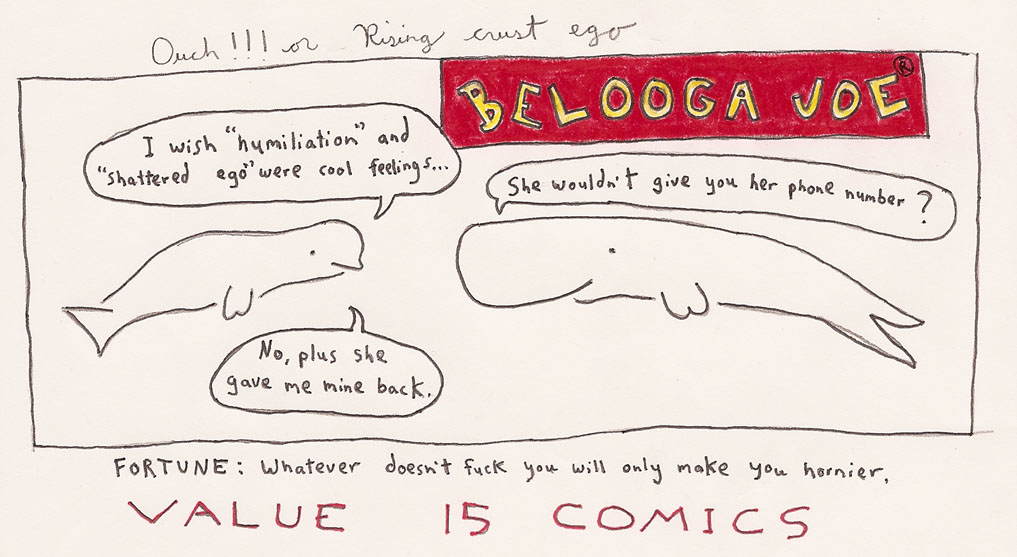 Ouch!!! or Rising crust ego
BELOOGA JOE®
I wish "humiliation" and
"shattered ego" were cool feelings...
She wouldn't give you her phone number?
No, plus she
gave me mine back.
FORTUNE: Whatever doesn't fuck you will only make you hornier.
VALUE 15 COMICS